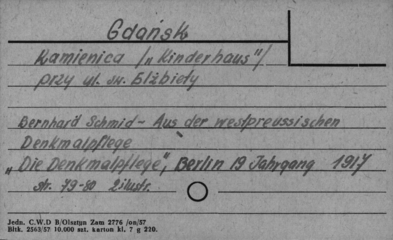 Gdańsk
Kamienica /„Kinderhaus"/
przy ul. św. Elżbiety
Bernhard Schmid - Aus der westpreussischen
Denkmalpflege
„Die Denkmalpflege", Berlin 19 Jahrgang 1917
str. 79-80 2 ilustr.
Jedn. C.W.D B/Olsztyn Zam 2776 /on/57
Bltk. 2563/57 10.000 szt. karton kl. 7 g 220.